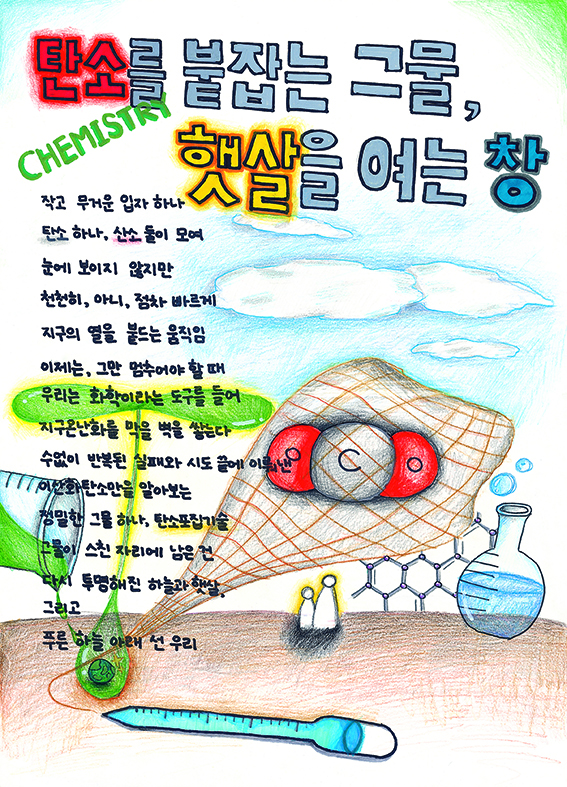 탄소를 붙잡는 그물,
CHEMISTRY
햇살을 여는 창
작고 무거운 입자 하나
탄소 하나, 산소 둘이 모여
눈에 보이지 않지만
천천히, 아니, 점차 빠르게
지구의 열을 붙드는 움직임
이제는, 그만 멈추어야 할 때
우리는 화학이라는 도구를 들어
지구온난화를 막을 벽을 쌓는다
수없이 반복된 실패와 시도 끝에 이뤄낸
이산화탄소만을 알아보는
정밀한 그물 하나, 탄소포집기술
그물이 스친 자리에 남은 건
다시 투명해진 하늘과 햇살,
그리고
푸른 하늘 아래 선 우리
O C O